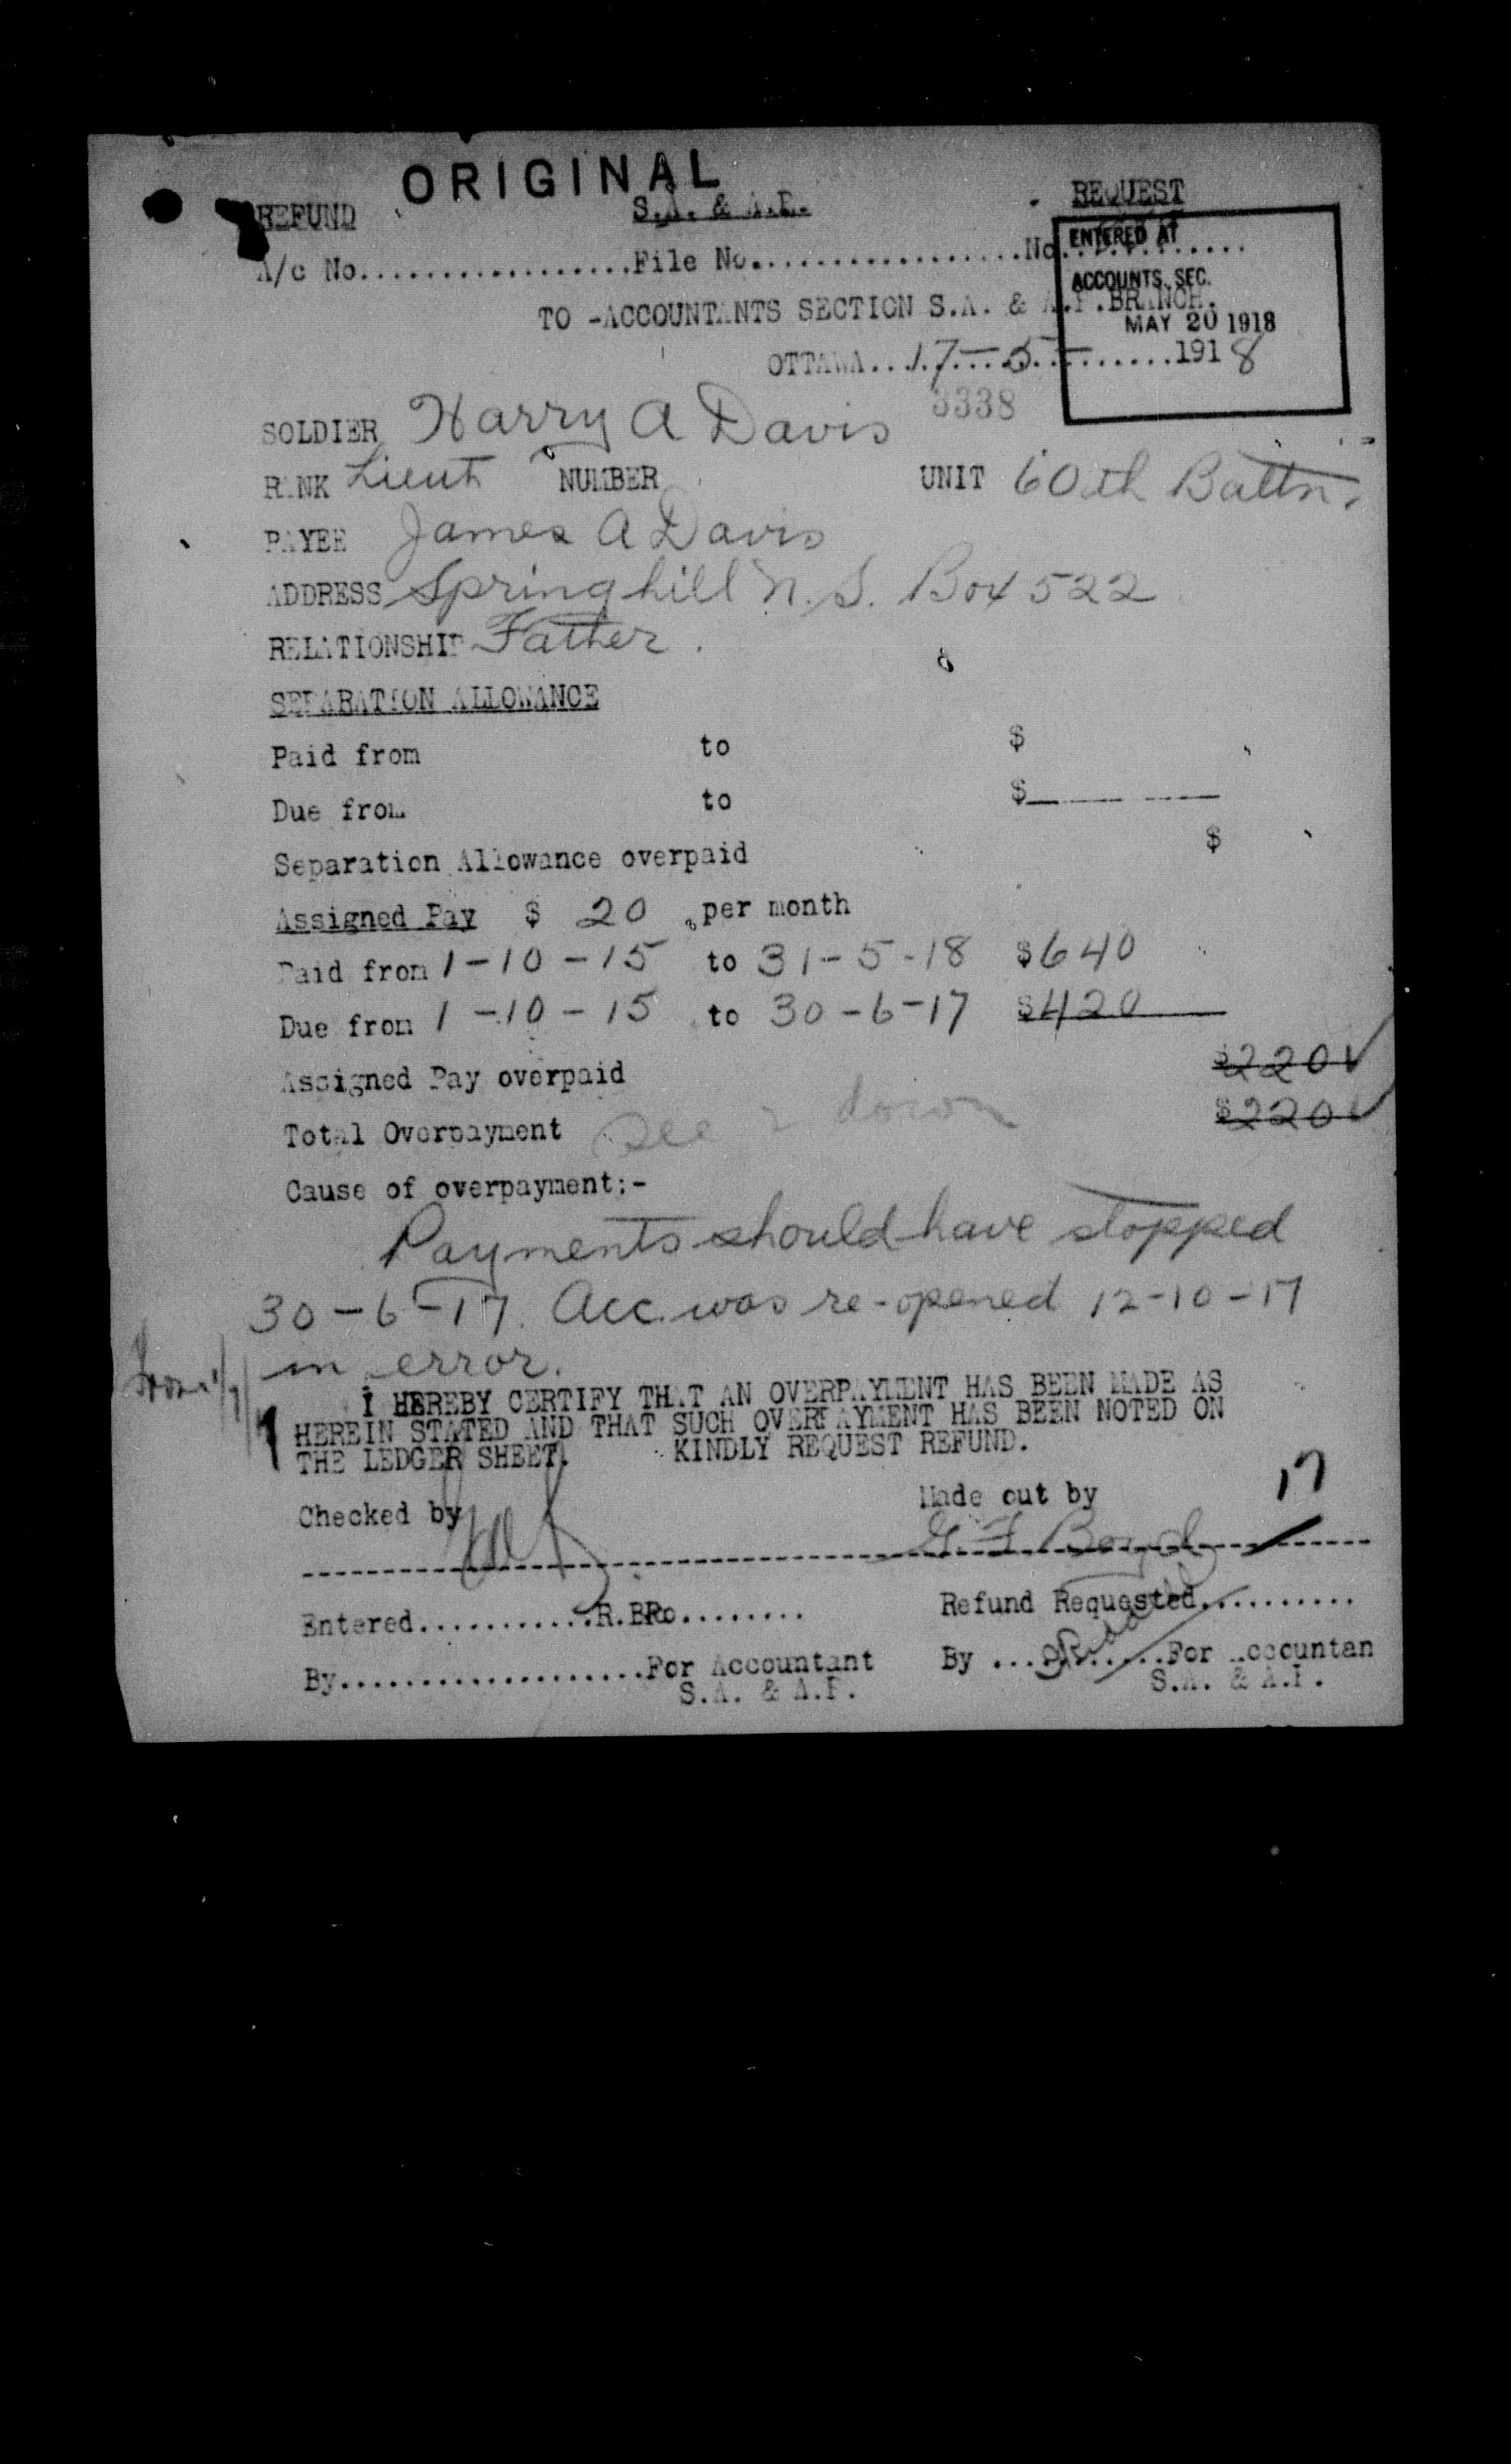 ORIGINAL
REFUND S.A. & A.P. REQUEST
A/c No..................File No..................No.............
ENTERED AT
ACCOUNTS. SEC.
MAY 20 1918
TO -ACCOUNTANTS SECTION S.A. & A.P.BRANCH.
OTTAWA...17-5-.......1918
3338
SOLDIER Harry A Davis
RANK Lieut NUMBER UNIT 60th Battn.
PAYEE James A Davis
ADDRESS Springhill N.S. Box 522
RELATIONSHIP Father.
SEPARATION ALLOWANCE
Paid from to $
Due from to $
Separation Allowance overpaid $
Assigned Pay $ 20 per month
Paid from 1-10-15 to 31-5-18 $640
Due from 1-10-15 to 30-6-17 $420
Assigned Pay overpaid $220
Total Overpayment see down $220
Cause of overpayment:-
Payments should have stopped
30-6-17. Acc. was re-opened 12-10-17
in error.
I HEREBY CERTIFY THAT AN OVERPAYMENT HAS BEEN MADE AS
HEREIN STATED AND THAT SUCH OVERPAYMENT HAS BEEN NOTED ON
THE LEDGER SHEET. KINDLY REQUEST REFUND.
17
Checked by Made out by
G. F. Boyd
Entered...........R.BRo........ Refund Requested..........
By...................For Accountant By ..........For Accountan
S.A. & A.P. S.A. & A.P.